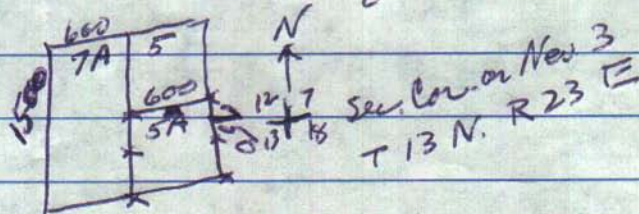 600
7A 5 N
1500
600
5A
12 7
13 18
Sec. Cor. on Nev 3
T 13 N. R 23 E